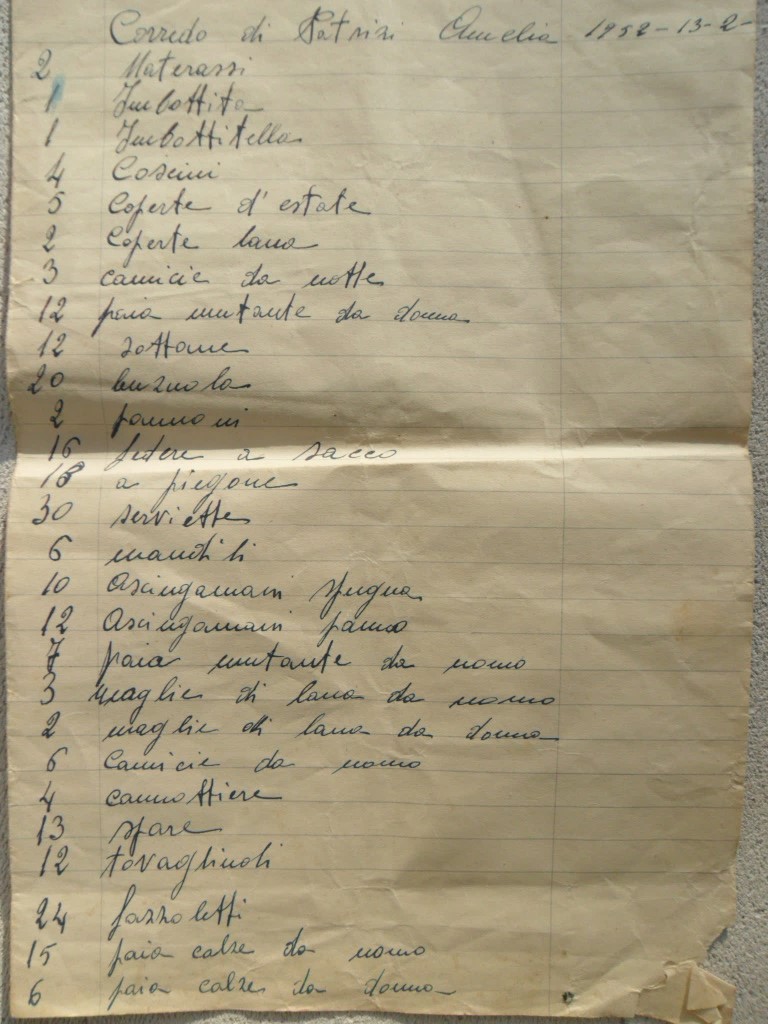 Corredo di Patrizi Amelia 1952-13-2-
2 Materassi
1 Imbottita
1 Imbottitella
4 Coscini
5 Coperte d'estate
2 Coperte lana
3 camicie da notte
12 paia mutante da donna
12 sottane
20
2 pannoni
16 federe a sacco
18 a piegone
30 serviette
6 mandili
10 Asciugamani spugna
12 Asciugamani panno
7 paia mutante da uomo
3 maglie di lana da uomo
2 maglie di lana da donna
6 Camicie da uomo
4 cannottiere
13 spare
12 tovagliuoli
24 fazzoletti
15 paia calze da uomo
6 paia calze da donna